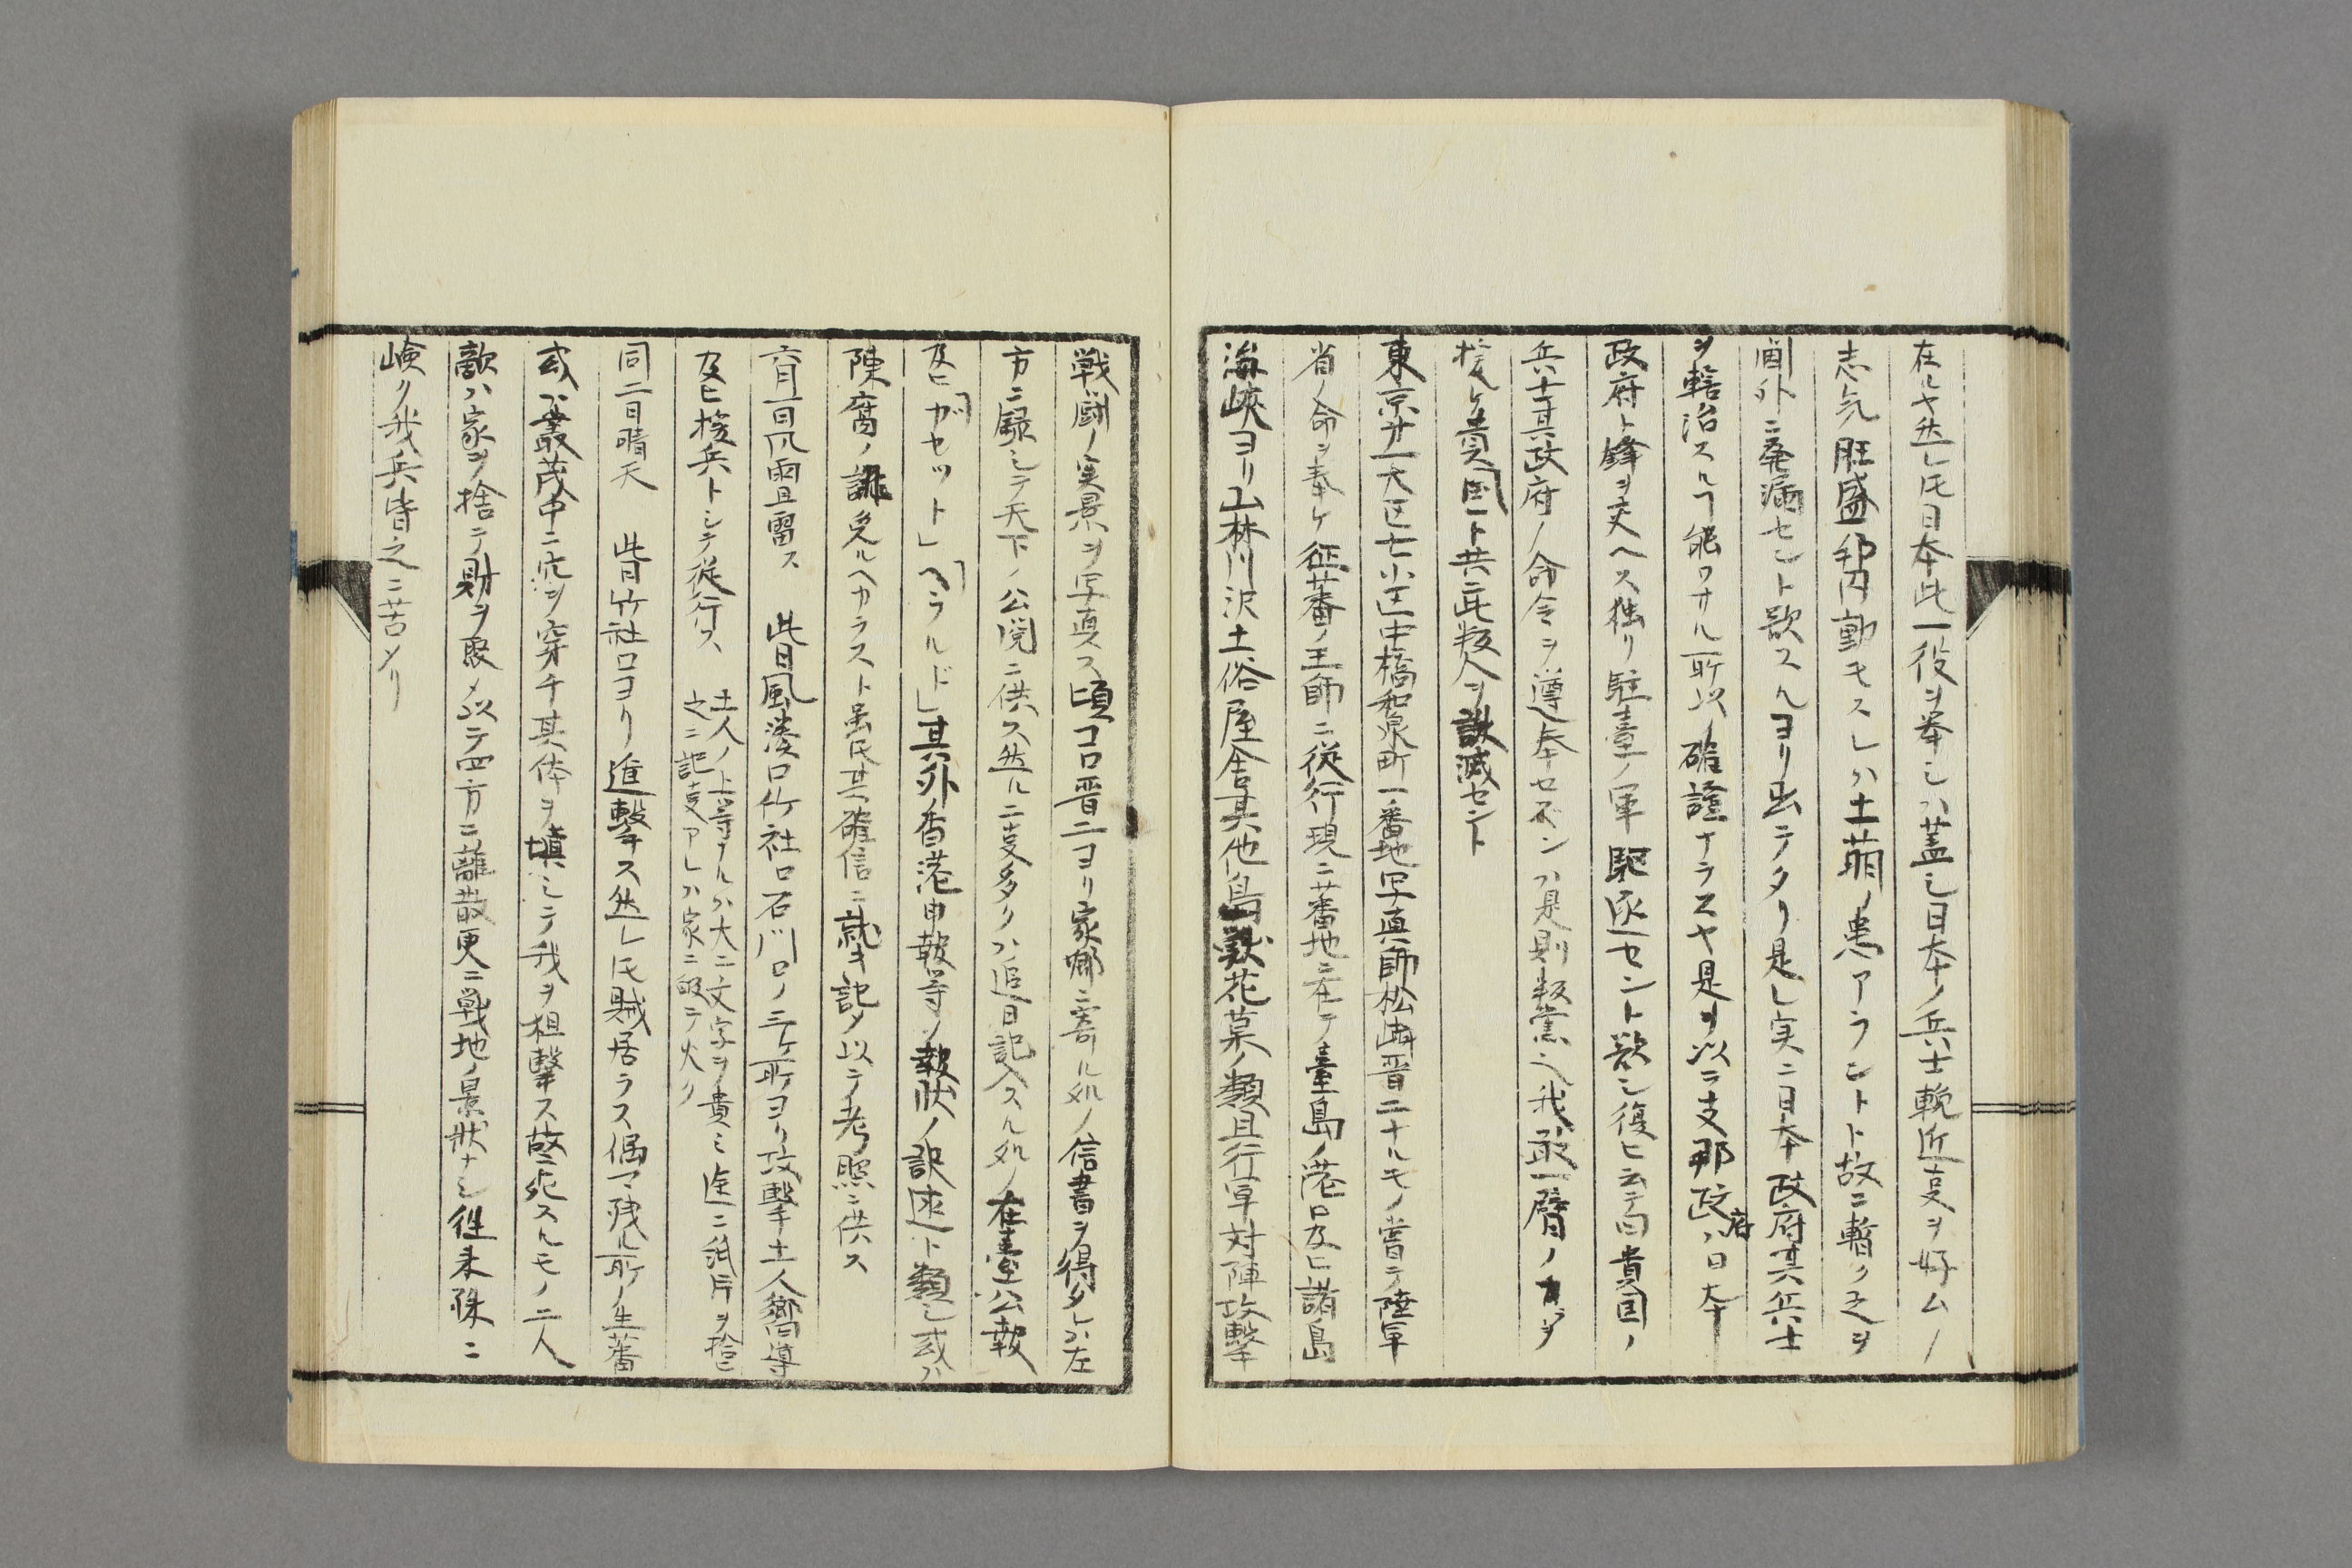 在ルヤ然レ𪜈日本此一役ヲ挙シハ蓋シ日本ノ兵士輓近支ヲ好ムノ
志気旺盛邦内動モスレハ土萠ノ患アラントト故ニ暫ク之ヲ
閫外ニ発漏セント欲スルヨリ出テタリ是レ実ニ日本政府其兵士
ヲ轄治スルヿ能ワサル所以ノ確證ナラスヤ是ヲ以テ支那政府ハ日本
政府ト鋒ヲ交ヘス独リ駐臺ノ軍駆逐セント欲シ復ヒ云テ曰貴国ノ
兵士其政府ノ命令ヲ遵奉セズンハ是則叛党也我敢一臂ノ力ヲ
援ケ貴国ト共ニ此叛人ヲ誅滅セント
東京廿一大区七小区中橋和泉町一番地写真師松崎晋二ナルモノ嘗テ陸軍
省ノ命ヲ奉ケ征蕃ノ王師ニ従行現ニ蕃地ニ在テ臺島ノ港口及ヒ諸島
海峡ヨリ山林川沢土俗屋舎其他島獣花菓ノ類且行軍対陣攻撃
戦闘ノ実景ヲ写真ス頃コロ晋二ヨリ家郷ニ寄ル処ノ信書ヲ得タレハ左
方ニ録シテ天下ノ公閲ニ供ス然ルニ支多クハ追日記入スル処ノ在臺公報
及ヒ「ガセット」「ヘラルド」其外香港申報等ノ報状ノ訳述ト類シ或ハ
陳腐ノ誹免ルヘカラスト虽𪜈其確信ニ就キ記メ以テ考照ニ供ス
六月一日風雨且雷ス 此日風湊口竹社口石川口ノ三ケ所ヨリ攻撃土人嚮導
及ヒ援兵トシテ従行ス 土人ノ上等ナルハ大ニ文字ヲ貴ミ途ニ紙片ヲ拾ヒ
之ニ記支アレハ家ニ皈テ火ク
同二日晴天 此日竹社口ヨリ進撃ス然レ𪜈賊居ラス偶マ残ル所ノ生蕃
或ハ叢茂中ニ穴ヲ穿チ其体ヲ塡シテ我ヲ狙撃ス故ニ死スルモノ二人
敵ハ家ヲ捨テ財ヲ聚メ以テ四方ニ離散更ニ戦地ノ景状ナシ徃来殊ニ
嶮ク我兵皆之ニ苦メリ